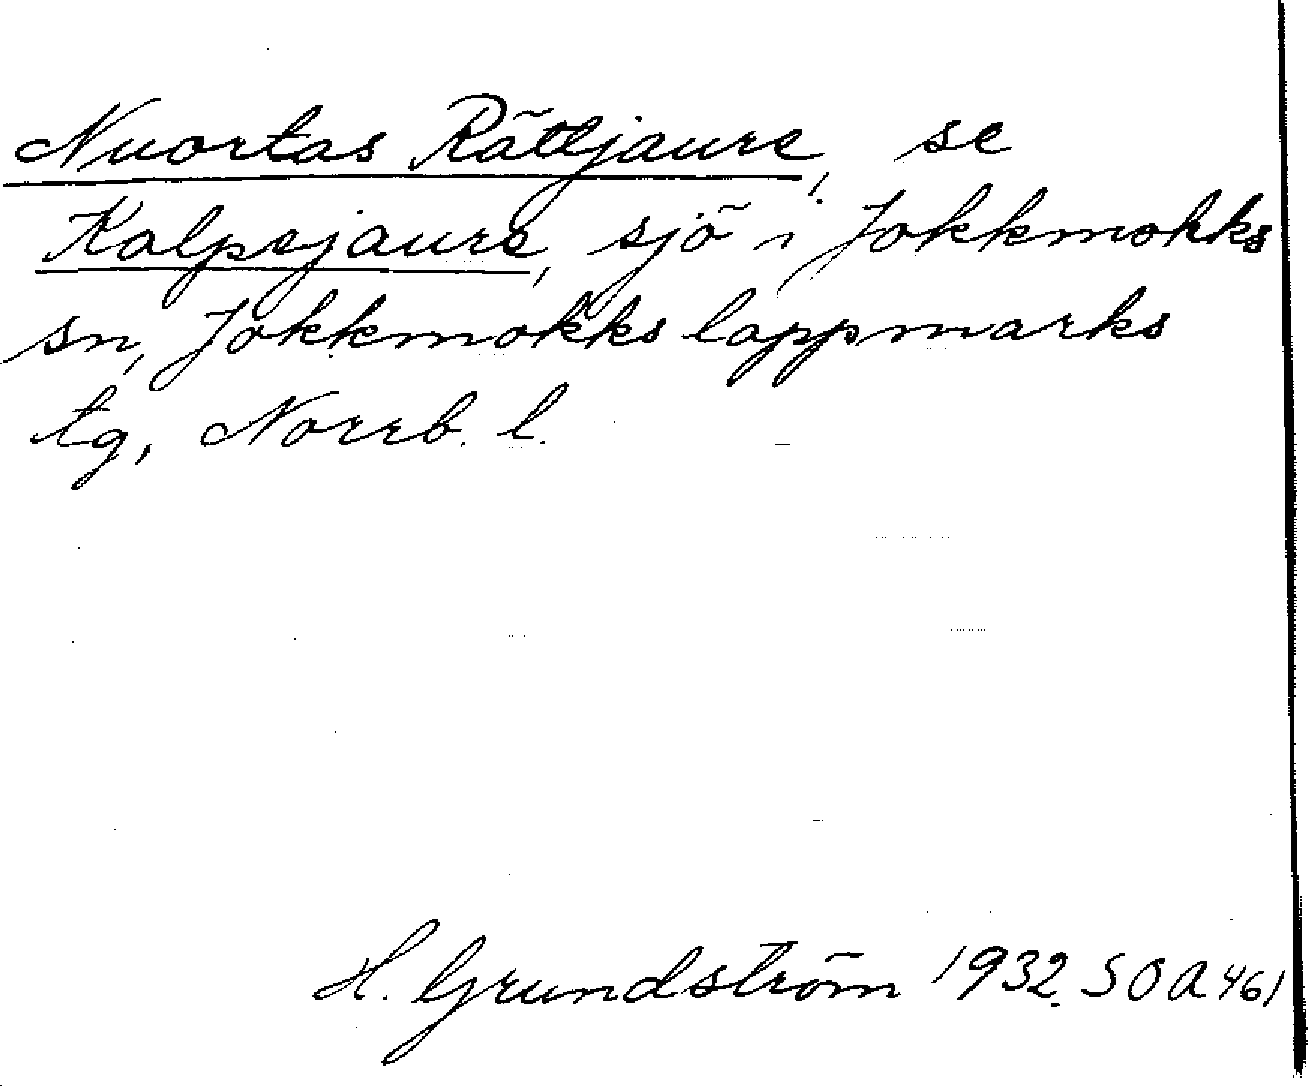 Nuortas Rättjaure, se
Kalpejaure, sjö i Jokkmokks
sn, Jokkmokks lappmarks
tg, Norrb. l.
H. Grundström 1932. SOA 461